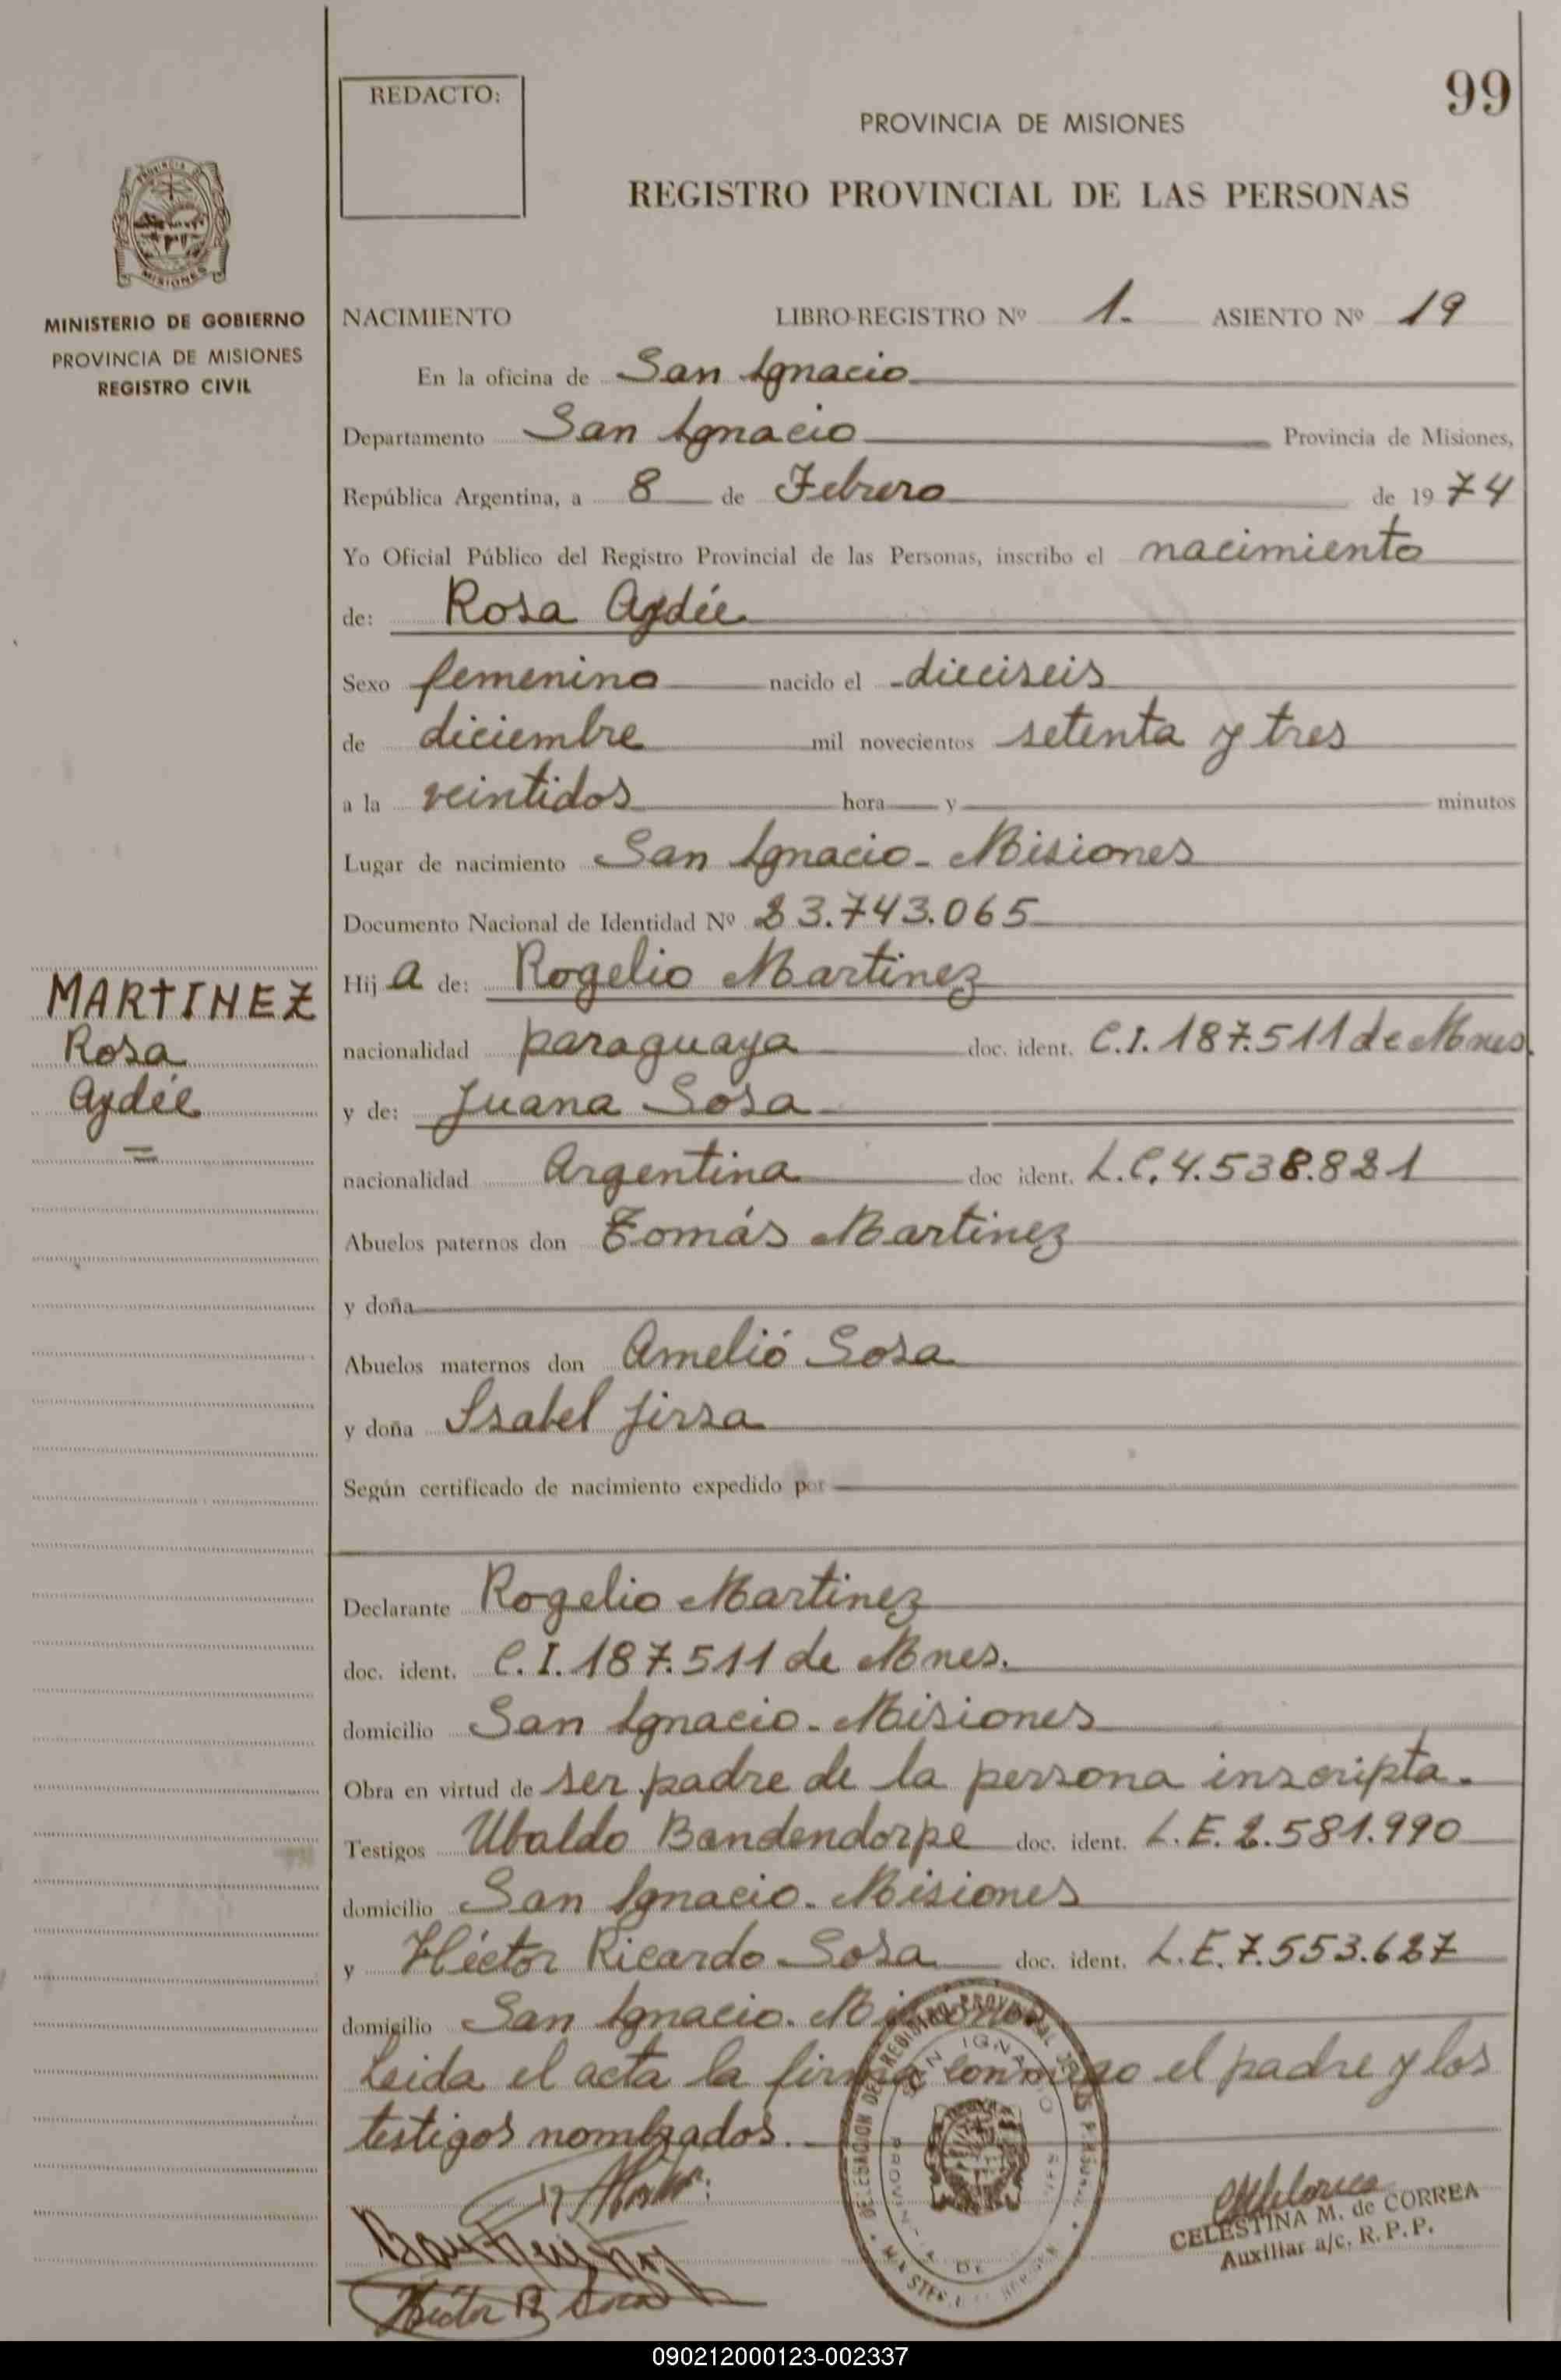 99
REDACTO:
PROVINCIA DE MISIONES
REGISTRO PROVINCIAL DE LAS PERSONAS
MISIONES
MINISTERIO DE GOBIERNO
PROVINCIA DE MISIONES
REGISTRO CIVIL
NACIMIENTO LIBRO-REGISTRO Nº 1. ASIENTO Nº 19
En la oficina de San Ignacio
Departamento San Ignacio Provincia de Misiones,
República Argentina, a 8 de Febrero de 1974
Yo Oficial Público del Registro Provincial de las Personas, inscribo el nacimiento
de: Rosa Aydée
Sexo femenino nacido el dieciseis
de diciembre mil novecientos setenta y tres
a la veintidos hora y minutos
Lugar de nacimiento San Ignacio - Misiones
Documento Nacional de Identidad Nº 23.743.065
MARTINEZ
Rosa
Aydée
Hija de: Rogelio Martinez
nacionalidad paraguaya doc. ident. C.I. 187.511 de Mnes.
y de: Juana Sosa
nacionalidad Argentina doc ident. L.C. 4.538.821
Abuelos paternos don Tomás Martinez
y doña
Abuelos maternos don Amelió Sosa
y doña Isabel Jirsa
Según certificado de nacimiento expedido por
Declarante Rogelio Martinez
doc. ident. C.I. 187.511 de Mnes.
domicilio San Ignacio - Misiones
Obra en virtud de ser padre de la persona inscripta.
Testigos Ubaldo Bandendorpe doc. ident. L.E. 2.581.990
domicilio San Ignacio - Misiones
y Héctor Ricardo Sosa doc. ident. L.E. 7.553.627
domicilio San Ignacio. Misiones
Leida el acta la firma conmigo el padre y los
testigos nombrados.
DELEGACION DEL REGISTRO PROVINCIAL DE LAS PERSONAS
SAN IGNACIO
PROVINCIA DE
CELESTINA M. de CORREA
Auxiliar a/c. R.P.P.
Héctor R Sosa
090212000123-002337